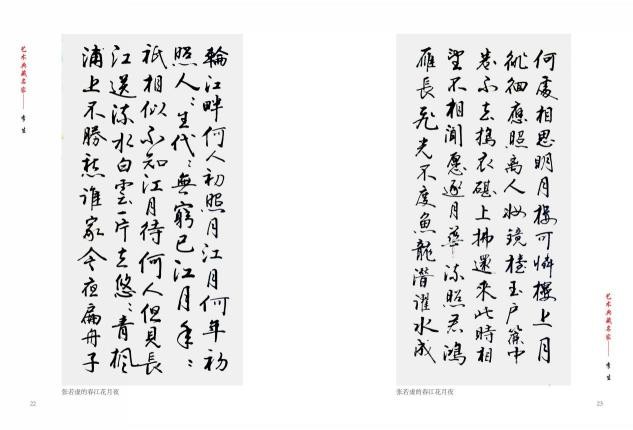 艺术典藏名家——
輪江畔何人初照月江月何年初
照人：生代：無窮已江月年：
祇相似不知江月待何人但見長
江送流水白雲一片去悠：青楓
浦上不勝愁誰家今夜扁舟子
张若虚的春江花月夜
22
何處相思明月樓可憐樓上月
徘徊應照离人妝鏡檯玉戶簾中
卷不去搗衣碪上拂還來此時相
望不相聞願逐月華流照君鴻
雁長飛光不度魚龍潛躍水成
艺术典藏名家——
张若虚的春江花月夜
23